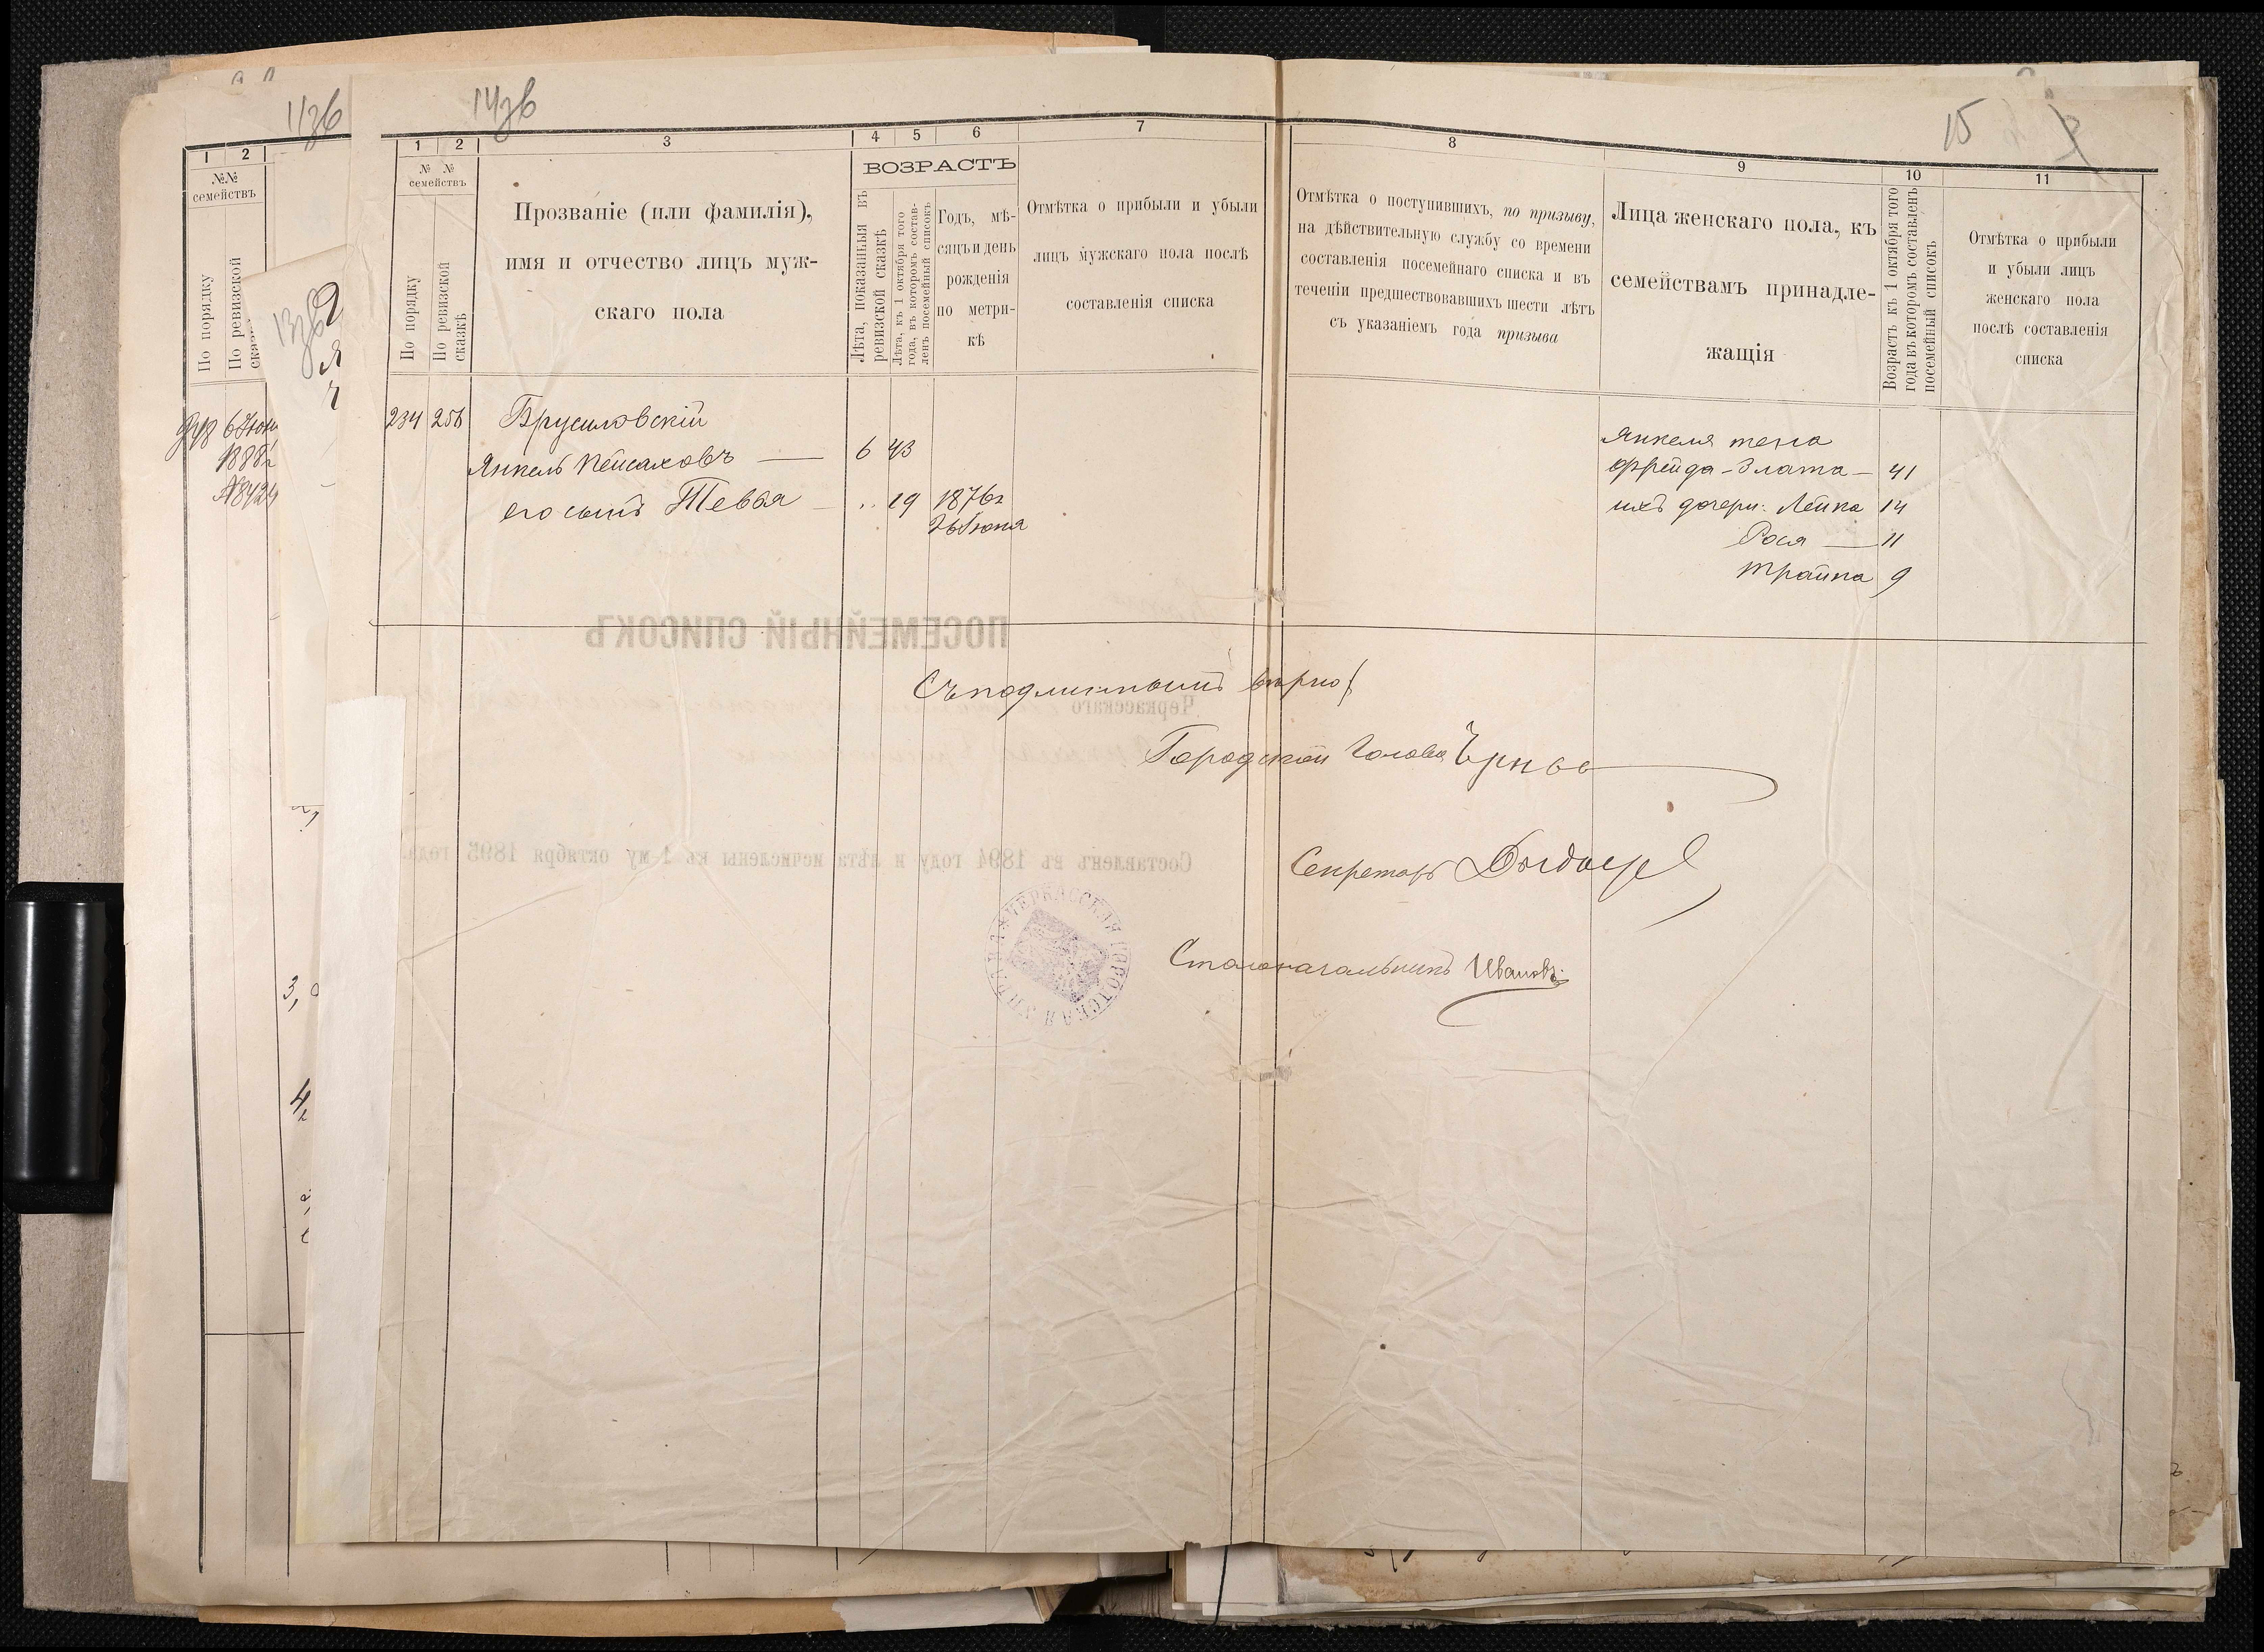 11зв
14зв
15
1 2
№№
семействъ
По порядку
По ревизской
13зв
6 Іюня
1888г
№8429
1 2 3 4 5 6 7
№ №
семействъ
По порядку
По ревизской
сказкѣ
Прозваніе (или фамилія),
имя и отчество лицъ муж-
скаго пола
ВОЗРАСТЪ
Лѣта, показанныя въ
ревизской сказкѣ
Лѣта, къ 1 октября того
года, въ которомъ состав-
ленъ посемейный списокъ
Годъ, мѣ-
сяцъ и день
рожденія
по метри-
кѣ
Отмѣтка о прибыли и убыли
лицъ мужскаго пола послѣ
составленія списка
8 9 10 11
Отмѣтка о поступившихъ, по призыву,
на дѣйствительную службу со времени
составленія посемейнаго списка и въ
теченіи предшествовавшихъ шести лѣтъ
съ указаніемъ года призыва
Лица женскаго пола, къ
семействамъ принадле-
жащія
Возрастъ къ 1 октября того
года въ которомъ составленъ
посемейный списокъ
Отмѣтка о прибыли
и убыли лицъ
женскаго пола
послѣ составленія
списка
234 256 Брусиловскій
Янкель Пейсаховъ — 6 43
его сынъ Тевья — .. 19 1876г
26 Іюня
Янкеля жена
Фрейда-Злата — 41
ихъ дочери: Лейка 14
Рося — 11
Трайна 9
ПОСЕМЕЙНЫЙ СПИСОКЪ
Съ подлиннымъ вѣрно:
Черкасскаго
Городской Голова
Составленъ въ 1894 году и лѣта исчислены къ 1-му октября 1895 года.
Секретарь
ЧЕРКАССКАЯ ГОРОДСКАЯ УПРАВА
Столоначальникъ Ивановъ
3,
4,